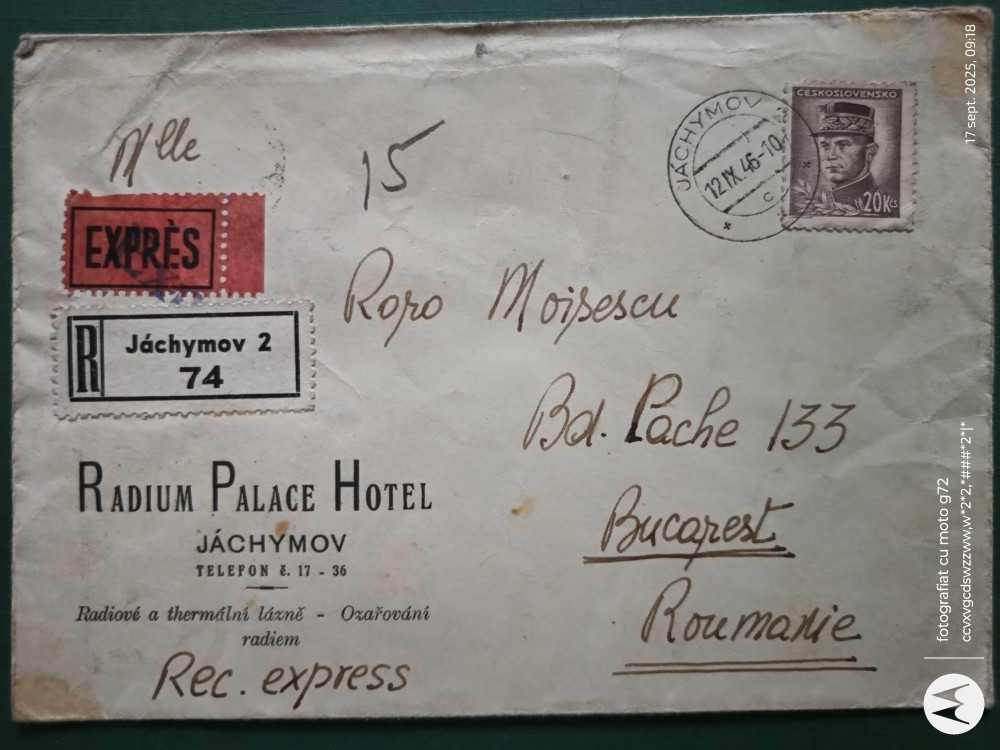 Mlle
15
JÁCHYMOV 2
12.IX.46-10
c
ČESKOSLOVENSKO
20Kčs
EXPRÈS
R
Jáchymov 2
74
Moisescu
Bd. Pache 133
Bucarest
Roumanie
RADIUM PALACE HOTEL
JÁCHYMOV
TELEFON č. 17 - 36
Radiové a thermální lázně - Ozařování
radiem
Rec. express
17 sept. 2025, 09:18
fotografiat cu moto g72
ccvxvgcdswzzww,w*2*2,*###*2*|*